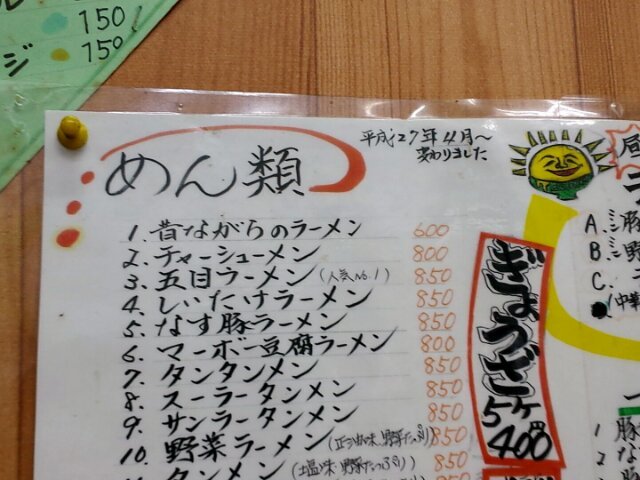 150
ジ 150
めん類
平成27年4月〜
変わりました
1. 昔ながらのラーメン 600
2. チャーシューメン 800
3. 五目ラーメン (人気No.1) 850
4. しいたけラーメン 850
5. なす豚ラーメン 850
6. マーボー豆腐ラーメン 800
7. タンタンメン 850
8. スーラータンメン 850
9. サンラータンメン 850
10. 野菜ラーメン 850
タンメン 850
ぎょうざ
5ケ
400円
A. ミニ豚
B. ミニ野
C.
1 豚
2 な